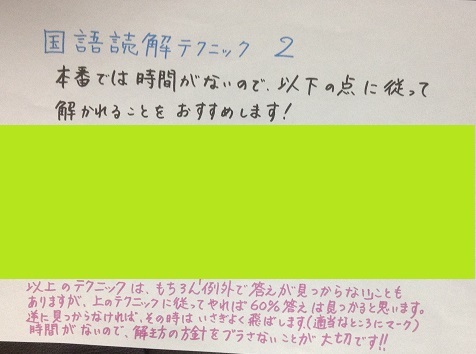 国語読解テクニック 2
本番では時間がないので、以下の点に従って
解かれることをおすすめします!
以上のテクニックは、もちろん例外で答えが見つからないことも
ありますが、上のテクニックに従ってやれば60%答えは見つかると思います。
逆に見つからなければ、その時はいさぎよく飛ばします。(適当なところにマーク)
時間がないので、解き方の方針をブラさないことが大切です!!